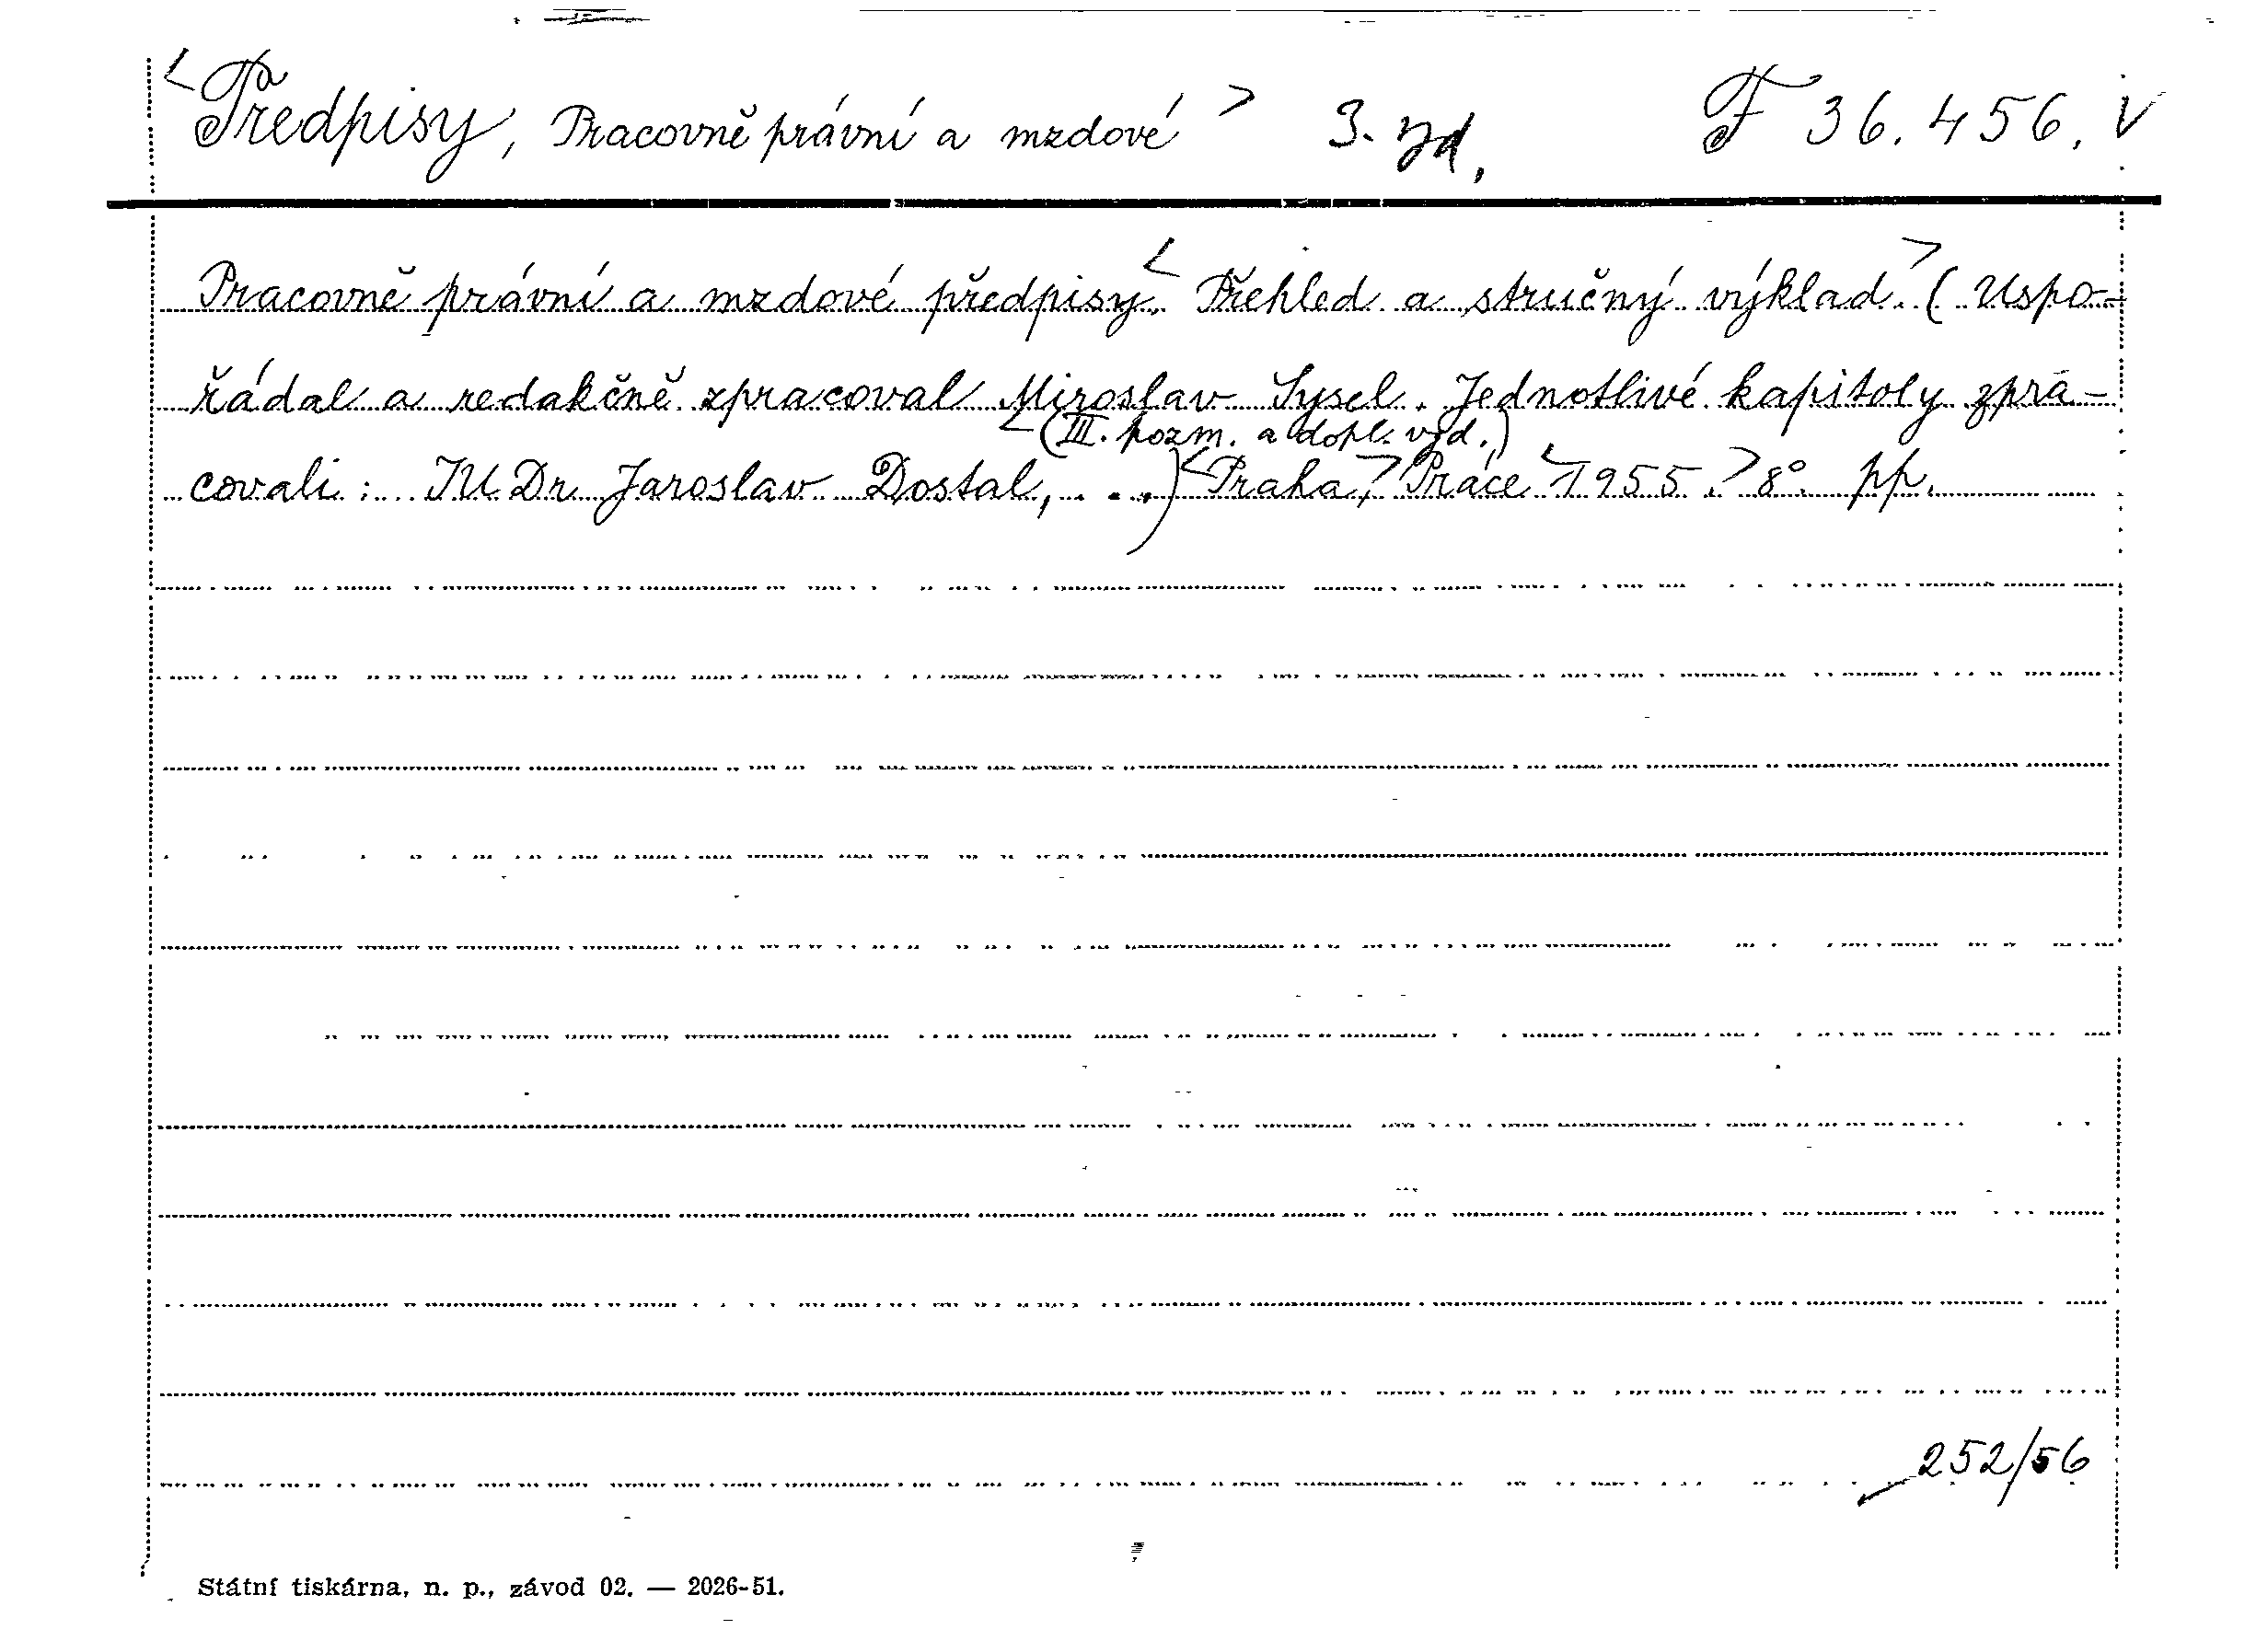 <Předpisy, Pracovně právní a mzdové> 3. vyd. F 36.456.V
Pracovně právní a mzdové předpisy. <Přehled a stručný výklad.> (Uspo-
řádal a redakčně zpracoval Miroslav Sysel. Jednotlivé kapitoly zpra-
<(III. pozm. a dopl. vyd.)
covali: JUDr Jaroslav Dostal, ...) <Praha,> Práce <1955.> 8°. pp.
252/56
Státní tiskárna, n. p., závod 02. — 2026-51.